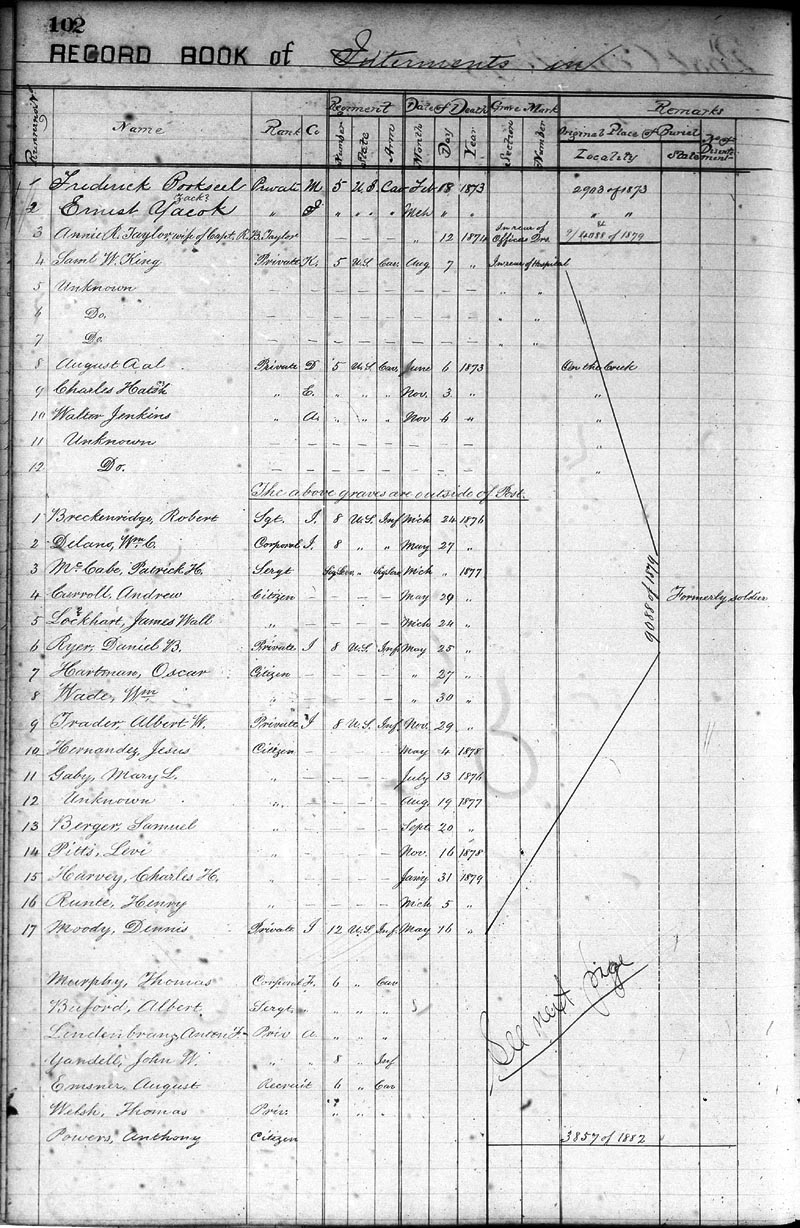 102
RECORD BOOK of Interments in
Regiment Date of Death Grave Mark Remarks
Name Rank Co Number State Arm Month Day Year Section Number Original Place of Burial
Locality Statement
1 Frederick Pookseel Private M 5 U.S. Cav Feb 18 1873 2903 of 1873
Zack?
2 Ernest Yacok " I " " " Mch " " " "
3 Annie R. Taylor, wife of Capt. R. B. Taylor — — — " 12 1874 In rear of Officers Qrs. 9088 of 1879
4 Saml W. King Private K. 5 U.S. Cav. Aug 7 " In rear of Hospital
5 Unknown — — — — — — — " "
6 Do. — — — — — — — " "
7 Do — — — — — — — " "
8 August Aal Private D 5 U.S. Cav. June 6 1873 On the Creek
9 Charles Hatsh " E. " " " Nov. 3 " "
10 Walter Jenkins " A. " " " Nov 4 " "
11 Unknown — — — — — — — — "
12 Do. — — — — — — — — "
The above graves are outside of Post.
1 Breckenridge, Robert Sgt. I. 8 U.S. Inf Mich 24 1876
2 Delano, Wm. C. Corporal I. 8 " " May 27 "
3 McCabe, Patrick H. Sergt Sig Serv. " Sig Serv Mich " 1877
4 Curroll, Andrew Citizen — — — May 29 " Formerly soldier
5 Lockhart, James Wall " — — — Mich 24 "
6 Ryer, Daniel B. Private I 8 U.S. Inf May 25 "
7 Hartman, Oscar Citizen — — — " 27 "
8 Wade, Wm " — — — " 30 "
9 Trader, Albert W. Private I 8 U.S. Inf. Nov. 29 "
10 Hernandez, Jesus Citizen — — — May 4 1878
11 Gaby, Mary L. " — — — July 13 1876
12 Unknown " — — — Aug. 19 1877
13 Berger, Samuel " — — — Sept. 20 "
14 Pitts, Levi " — — — Nov. 16 1878
15 Harvey, Charles H. " — — — Jan'y 31 1879
16 Runte, Henry " — — — Mich 5 "
17 Moody, Dennis Private I 12 U.S. Inf. May 16 "
9088 of 1879
Murphy, Thomas Corporal F. 6 " Cav
Buford, Albert Sergt. " " " "
Lindenbranz, Anton F. Priv A. " " "
Yandell, John W. " " 8 " Inf
Emsner, August Recruit 6 " Cav
Welsh, Thomas Priv. " " "
Powers, Anthony Citizen 3857 of 1882
See next page